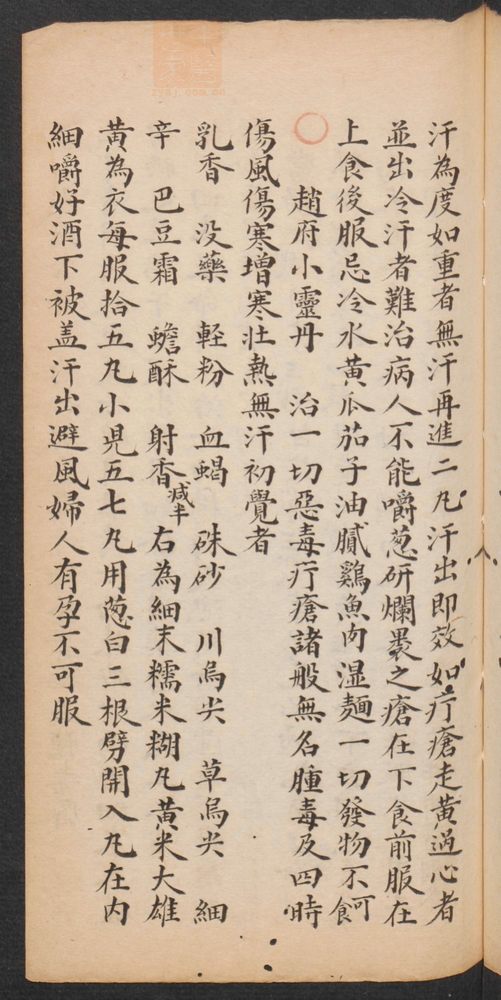 汗為度如重者無汗再進二凡汗出即效如疔瘡走黃過心者
並出冷汗者難治病人不能嚼葱研爛裹之瘡在下食前服在
上食後服忌冷水黃瓜茄子油膩鷄魚肉湿麵一切發物不可食
趙府小靈丹　治一切惡毒疔瘡諸般無名腫毒及四時
傷風傷寒增寒壯熱無汗初覺者
乳香　没藥　軽粉　血蝎　硃砂　川烏尖　草烏尖　細
辛　巴豆霜　蟾酥　射香減半　右為細末糯米糊凡黃米大雄
黃為衣每服拾五凡小児五七凡用葱白三根劈開入凡在内
細嚼好酒下被盖汗出避風婦人有孕不可服